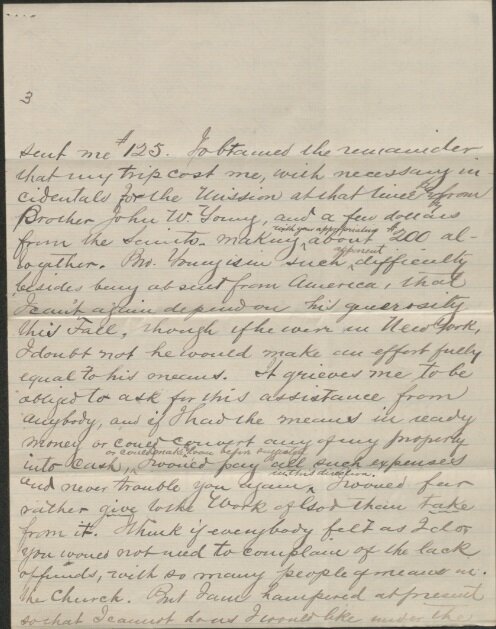 3
sent me $125. I obtained the remainder
that my trip cost me, with necessary in
cidentals for the Mission at that time from
Brother John W Young, and a few dollars
from the Saints - making, with your appropriating about $200 al-
together. Bro. Young is in such apparent difficulty
besides being absent from America, that
I can't again depend on his generosity
this Fall, though if he were in New York,
I doubt not he would make an effort fully
equal to his means. It grieves me to be
obliged to ask for this assistance from
anybody, and if I had the means in ready
money or could convert any of my property
into cash, or could make loan I would pay all such expenses
and never trouble you again in this direction. I would far
rather give to the Work of God than take
from it. I think if everybody felt as I do
you would not need to complain of the lack
of funds, with so many people of means in
the Church. But I am hampered at present
so that I cannot do as I would like under the